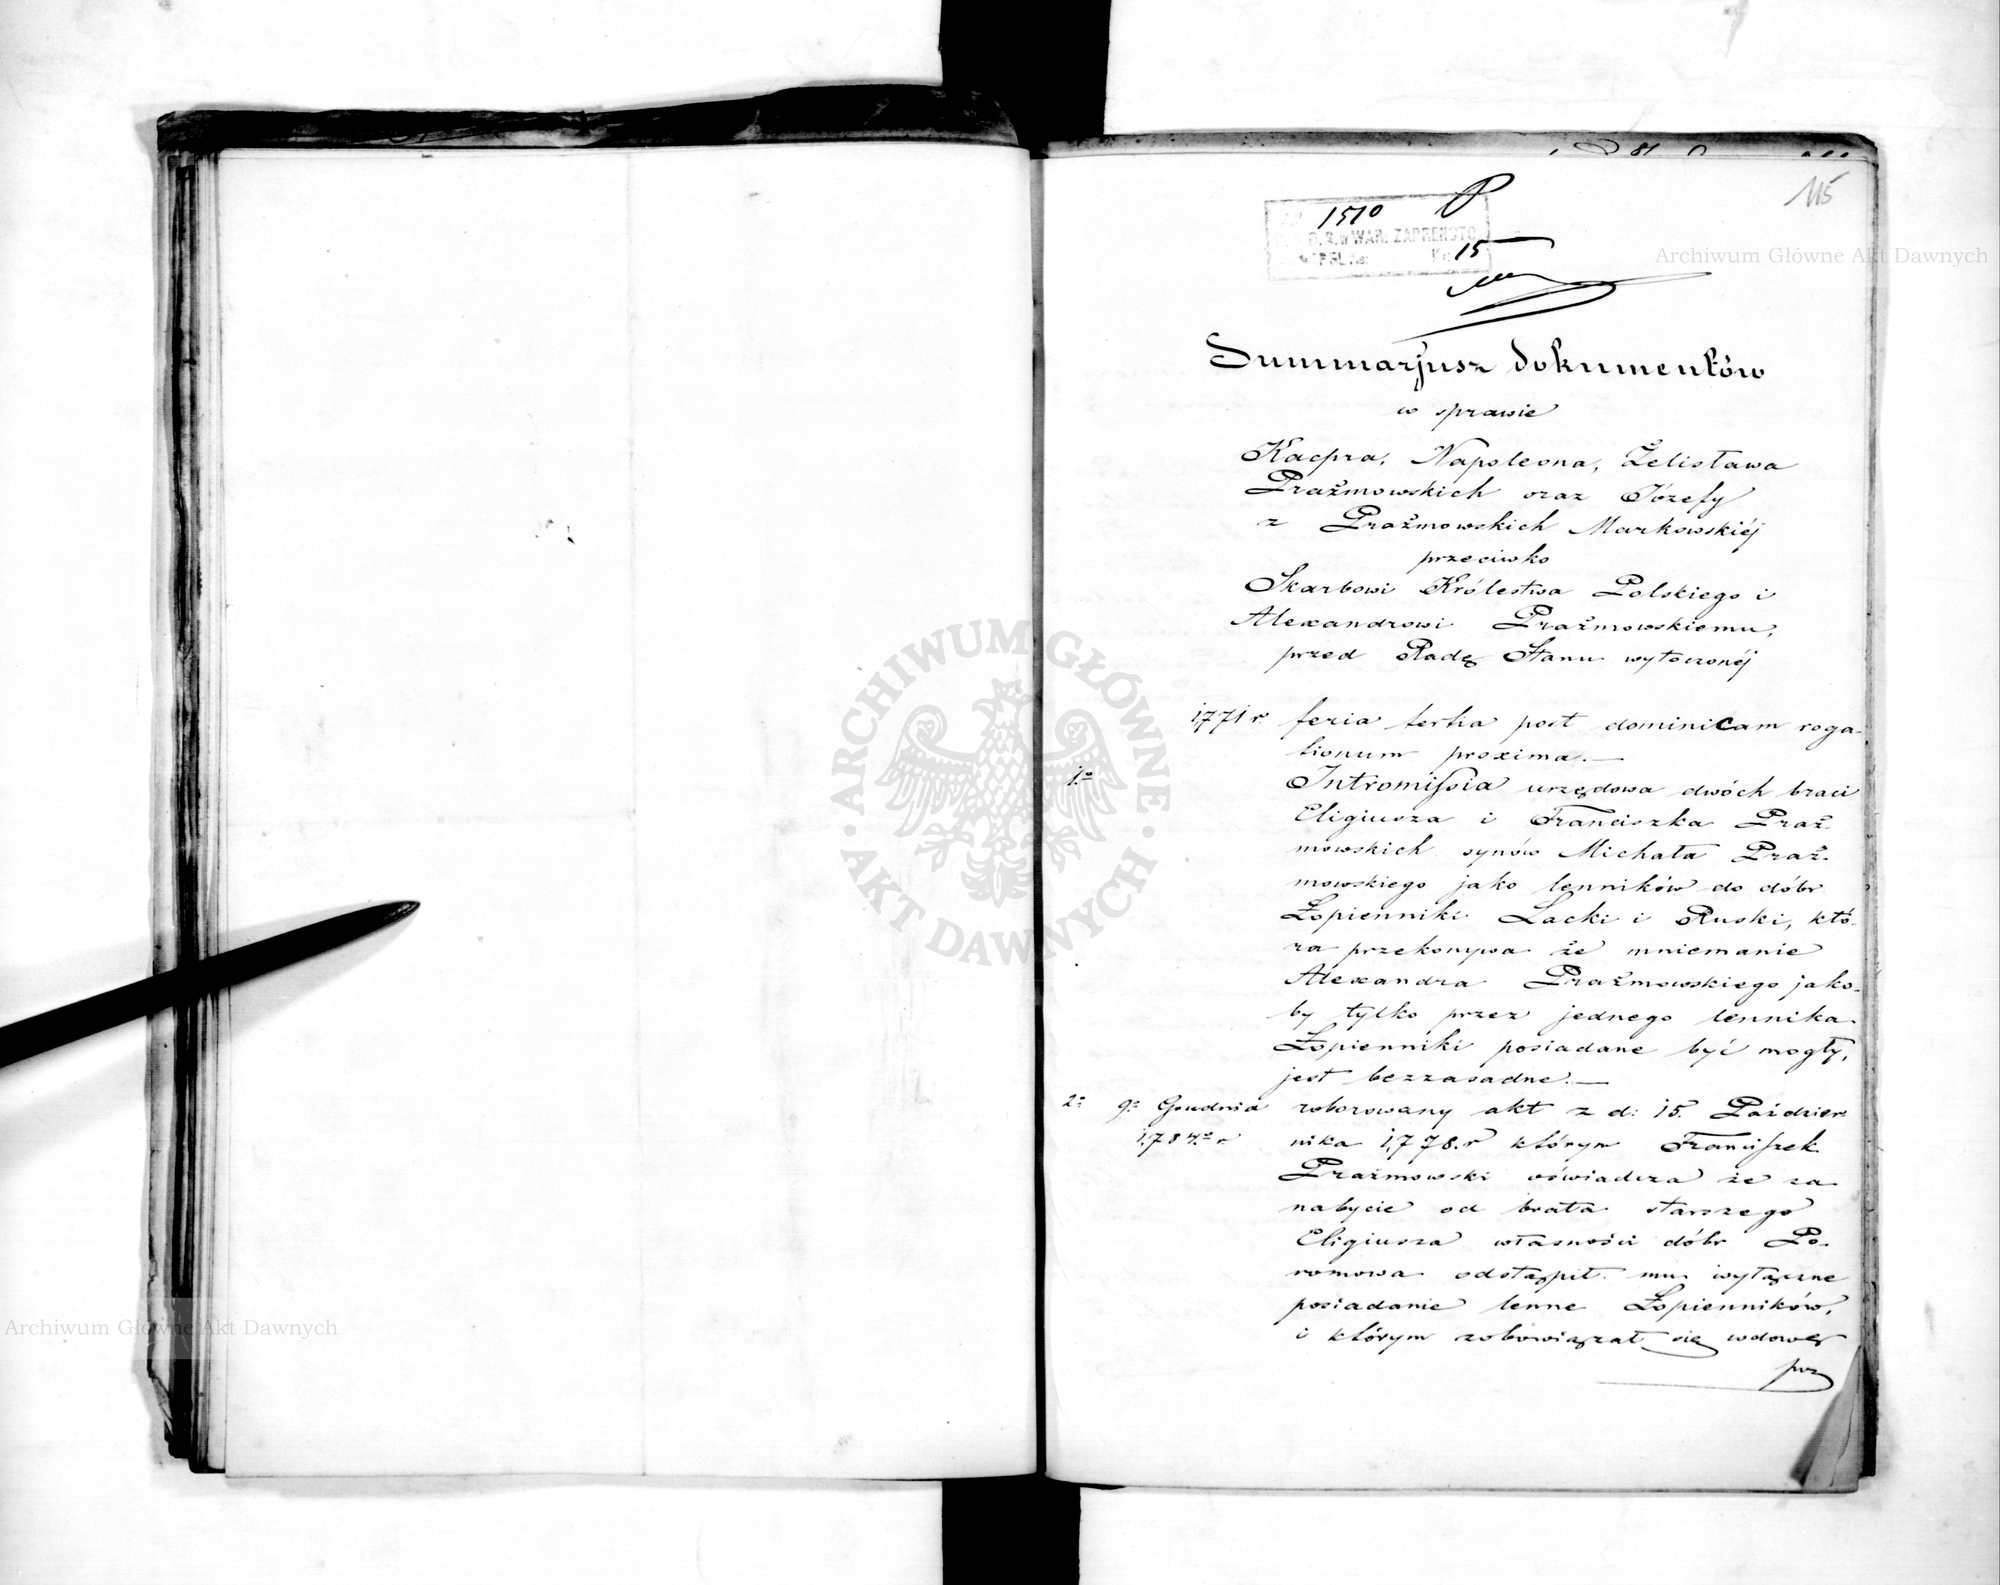 115
1510
15
Archiwum Główne Akt Dawnych
Summarjusz dokumentów
w sprawie
Kacpra, Napoleona, Żelisława
Prażmowskich oraz Józefy
z Prażmowskich Markowskiéj
przeciwko
Skarbowi Królestwa Polskiego i
Alexandrowi Prażmowskiemu,
przed Radą Stanu wytoczonéj
1771 r. feria tertia post dominicam roga-
tionum proxima.—
1.o Intromissia urzędowa dwóch braci
Eligiusza i Franciszka Praż-
mowskich synów Michała Praż-
mowskiego jako lenników do dóbr
Łopienniki Lacki i Ruski, któ-
ra przekonywa że mniemanie
Alexandra Prażmowskiego jako-
by tylko przez jednego lennika
Łopienniki posiadane być mogły,
jest bezzasadne.—
2.o 9.o Grudnia roborowany akt z d: 15. Paździer
1784.o r nika 1778.r którym Franciszek
Prażmowski oświadcza że za
nabycie od brata starszego
Eligiusza własności dóbr Po-
romowa odstąpił mu wyłączne
posiadanie lenne Łopienników,
i którym zobowiązał się wdowę
po
ARCHIWUM GŁÓWNE
AKT DAWNYCH
Archiwum Główne Akt Dawnych